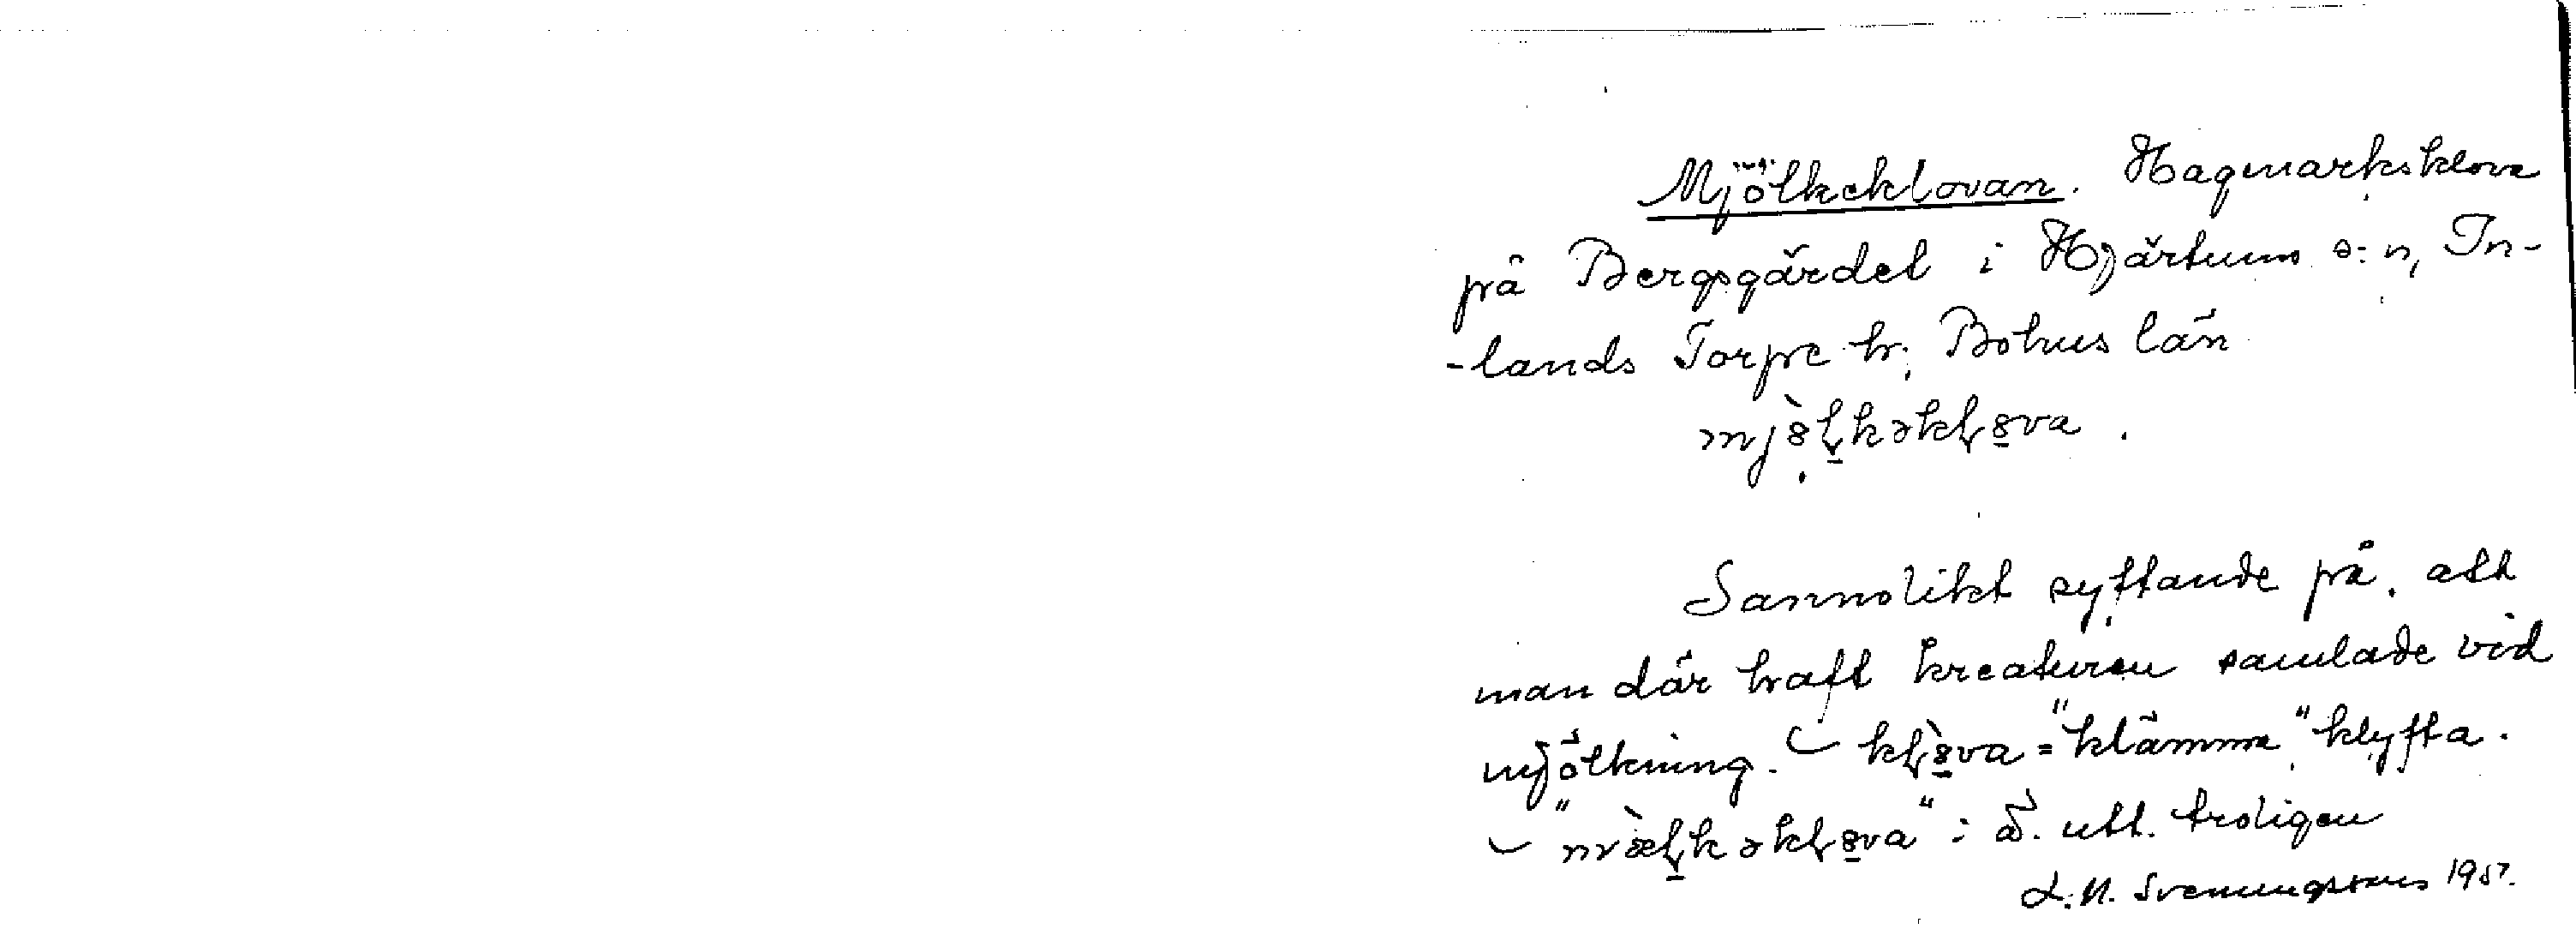 Mjölkeklovan. Hagmarksklova
på Bergsgärdet i Hjärtums s:n, In-
-lands Torpe hr, Bohus län
mjȣ̀ɽkəkɽȣva.
Sannolikt syftande på, att
man där haft kreaturen samlade vid
mjölkning. – kɽȣ̀va = "klämma" klyfta.
– "mæ̀ɽkəkɽȣva" i ä. utt. troligen
L. N. Svenungsson 1957.